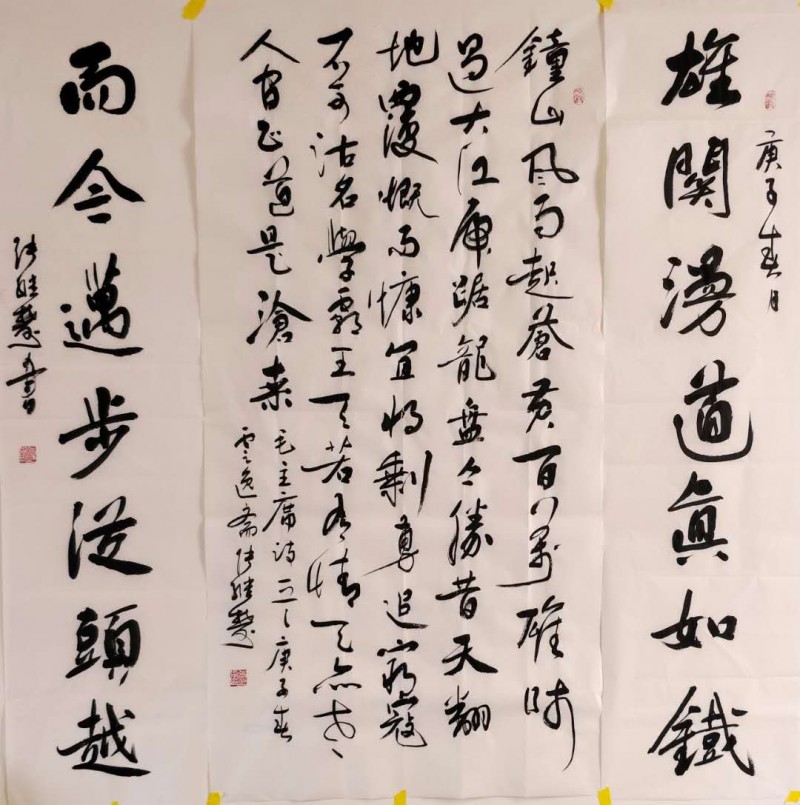 庚子春月
雄關漫道真如鐵
鐘山風雨起蒼黃百萬雄師
過大江虎踞龍盤今勝昔天翻
地覆慨而慷宜將剩勇追窮寇
不可沽名學霸王天若有情天亦老
人間正道是滄桑
毛主席詩 庚子春
雲逸齋張慧
而今邁步從頭越
張慧書